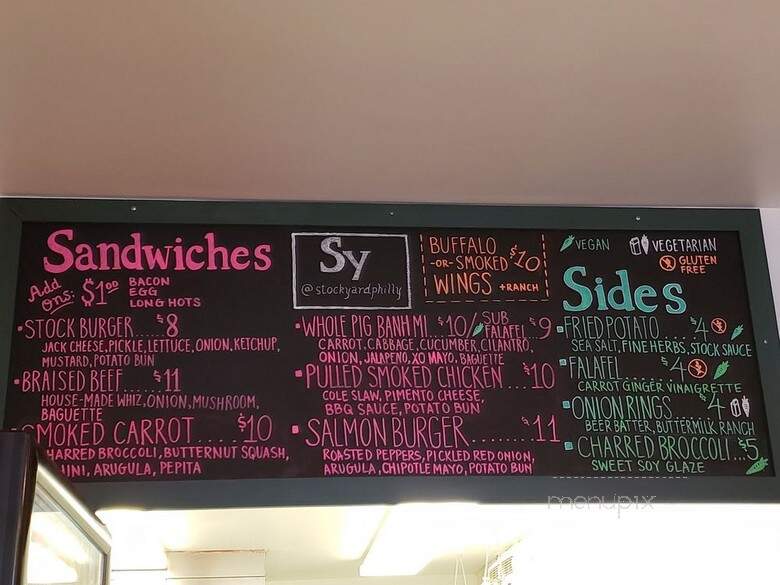 Sandwiches
Add
ons: $1.00 BACON
EGG
LONG HOTS
STOCK BURGER... $8
JACK CHEESE, PICKLE, LETTUCE, ONION, KETCHUP,
MUSTARD, POTATO BUN
BRAISED BEEF... $11
HOUSE-MADE WHIZ, ONION, MUSHROOM,
BAGUETTE
SMOKED CARROT.... $10
HARRED BROCCOLI, BUTTERNUT SQUASH,
ARUGULA, PEPITA
Sy
@stockyardphilly
BUFFALO
-OR- SMOKED $10
WINGS + RANCH
WHOLE PIG BANH MI. $10/ SUB FALAFEL $9
CARROT, CABBAGE, CUCUMBER, CILANTRO,
ONION, JALAPENO, XO MAYO, BAGUETTE
PULLED SMOKED CHICKEN... $10
COLE SLAW, PIMENTO CHEESE,
BBQ SAUCE, POTATO BUN
SALMON BURGER....... $11
ROASTED PEPPERS, PICKLED RED ONION,
ARUGULA, CHIPOTLE MAYO, POTATO BUN
VEGAN VEGETARIAN
GLUTEN
FREE
Sides
FRIED POTATO.... $4
SEA SALT, FINE HERBS, STOCK SAUCE
FALAFEL..... $4
CARROT GINGER VINAIGRETTE
ONION RINGS.... $4
BEER BATTER, BUTTERMILK RANCH
CHARRED BROCCOLI... $5
SWEET SOY GLAZE
menupix